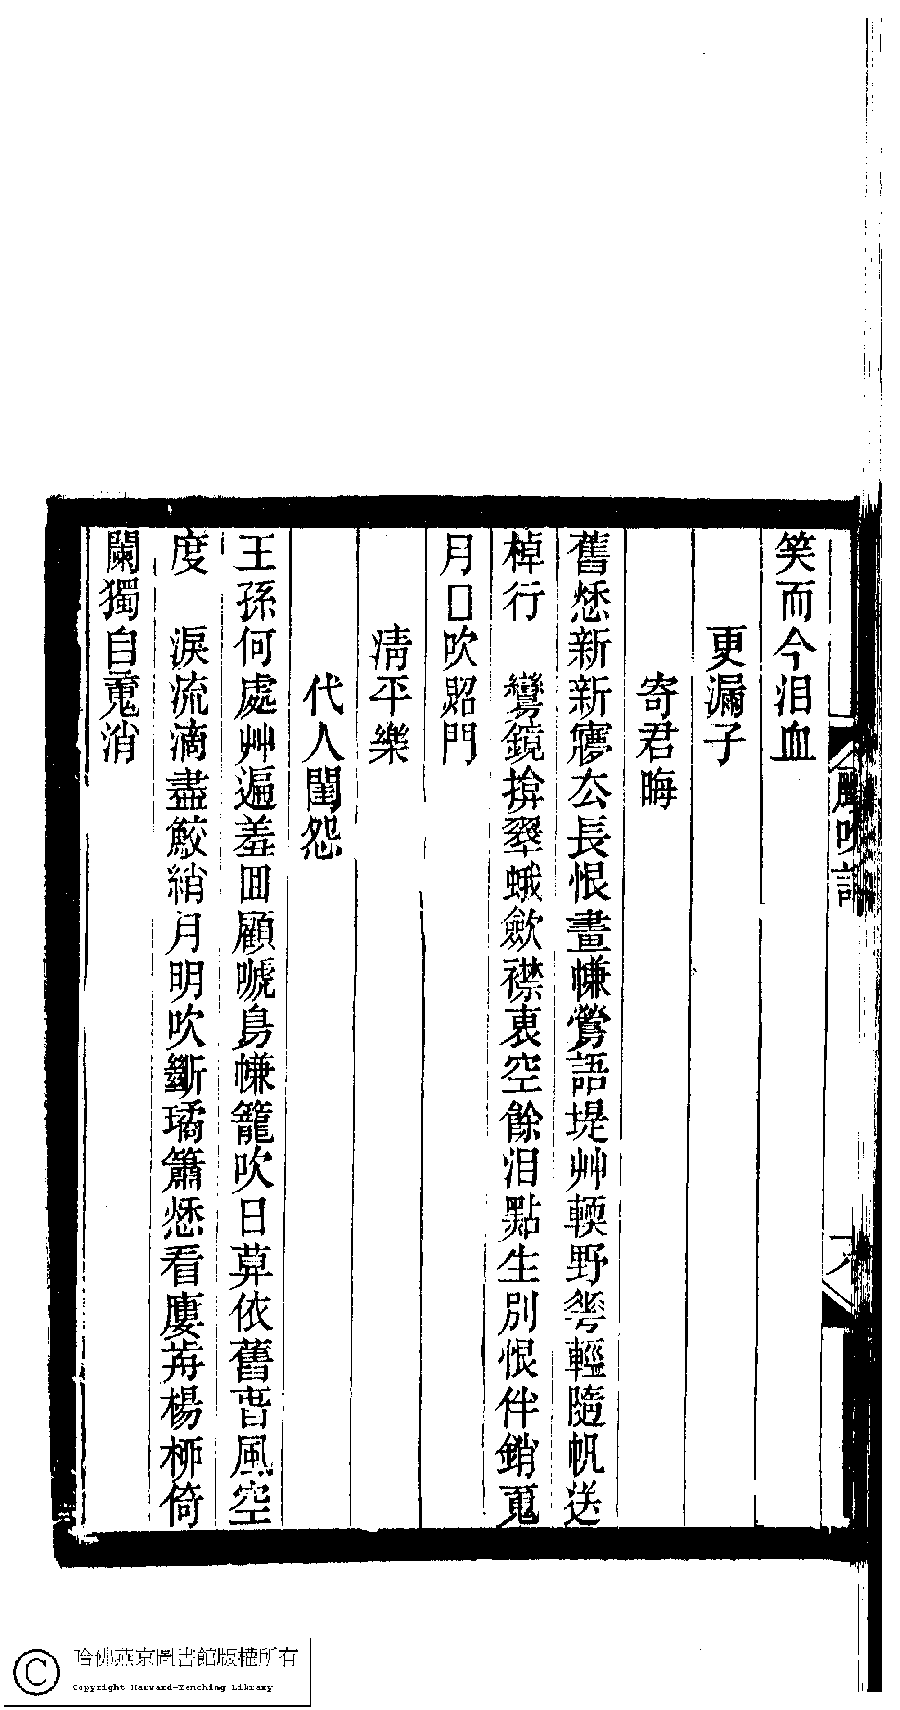 笑而今泪血
更漏子
寄君晦
舊愁新新寢厺長恨畫㡘鶯語堤艸輭野華輕隨帆送
棹行　鸞鏡揜翠蛾歛襟裏空餘泪點生別恨伴銷䰟
月口吹照門
清平樂
代人閨怨
王孫何處艸遍羞回顧嗁鳥㡘籠吹日莫依舊萅風空
度　淚流滴盡鮫綃月明吹斷璚簫愁看廔歬楊桺倚
闌獨自䰟消
吹
六
哈佛燕京圖書館版權所有
Copyright Harvard-Yenching Library